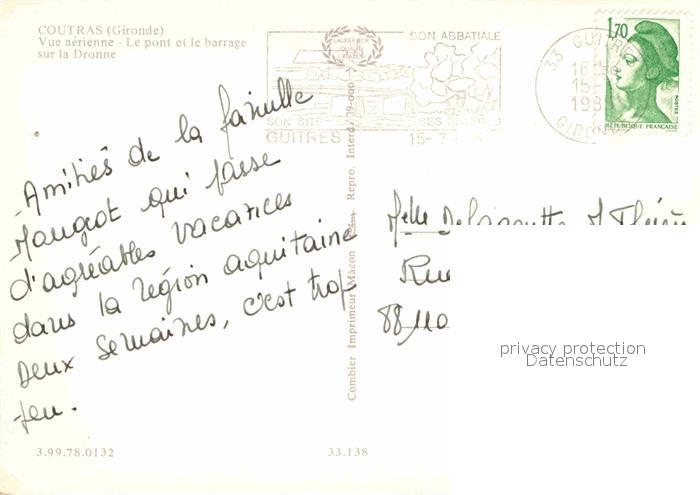 COUTRAS (Gironde)
Vue aérienne - Le pont et le barrage
sur la Dronne
SON ABBATIALE
SON SITE
GUITRES
15-7
33 GUITRES
16
15-
198
GIRONDE
1,70
POSTES
REPUBLIQUE FRANÇAISE
Amitiés de la famille
Maugeot qui passe
d'agréables vacances
dans la région aquitaine
Deux semaines, c'est trop
peu.
Combier Imprimeur Mâcon Repro. Interd. 39-000
Melle
Rue
88110
privacy protection
Datenschutz
3.99.78.0132
33.138